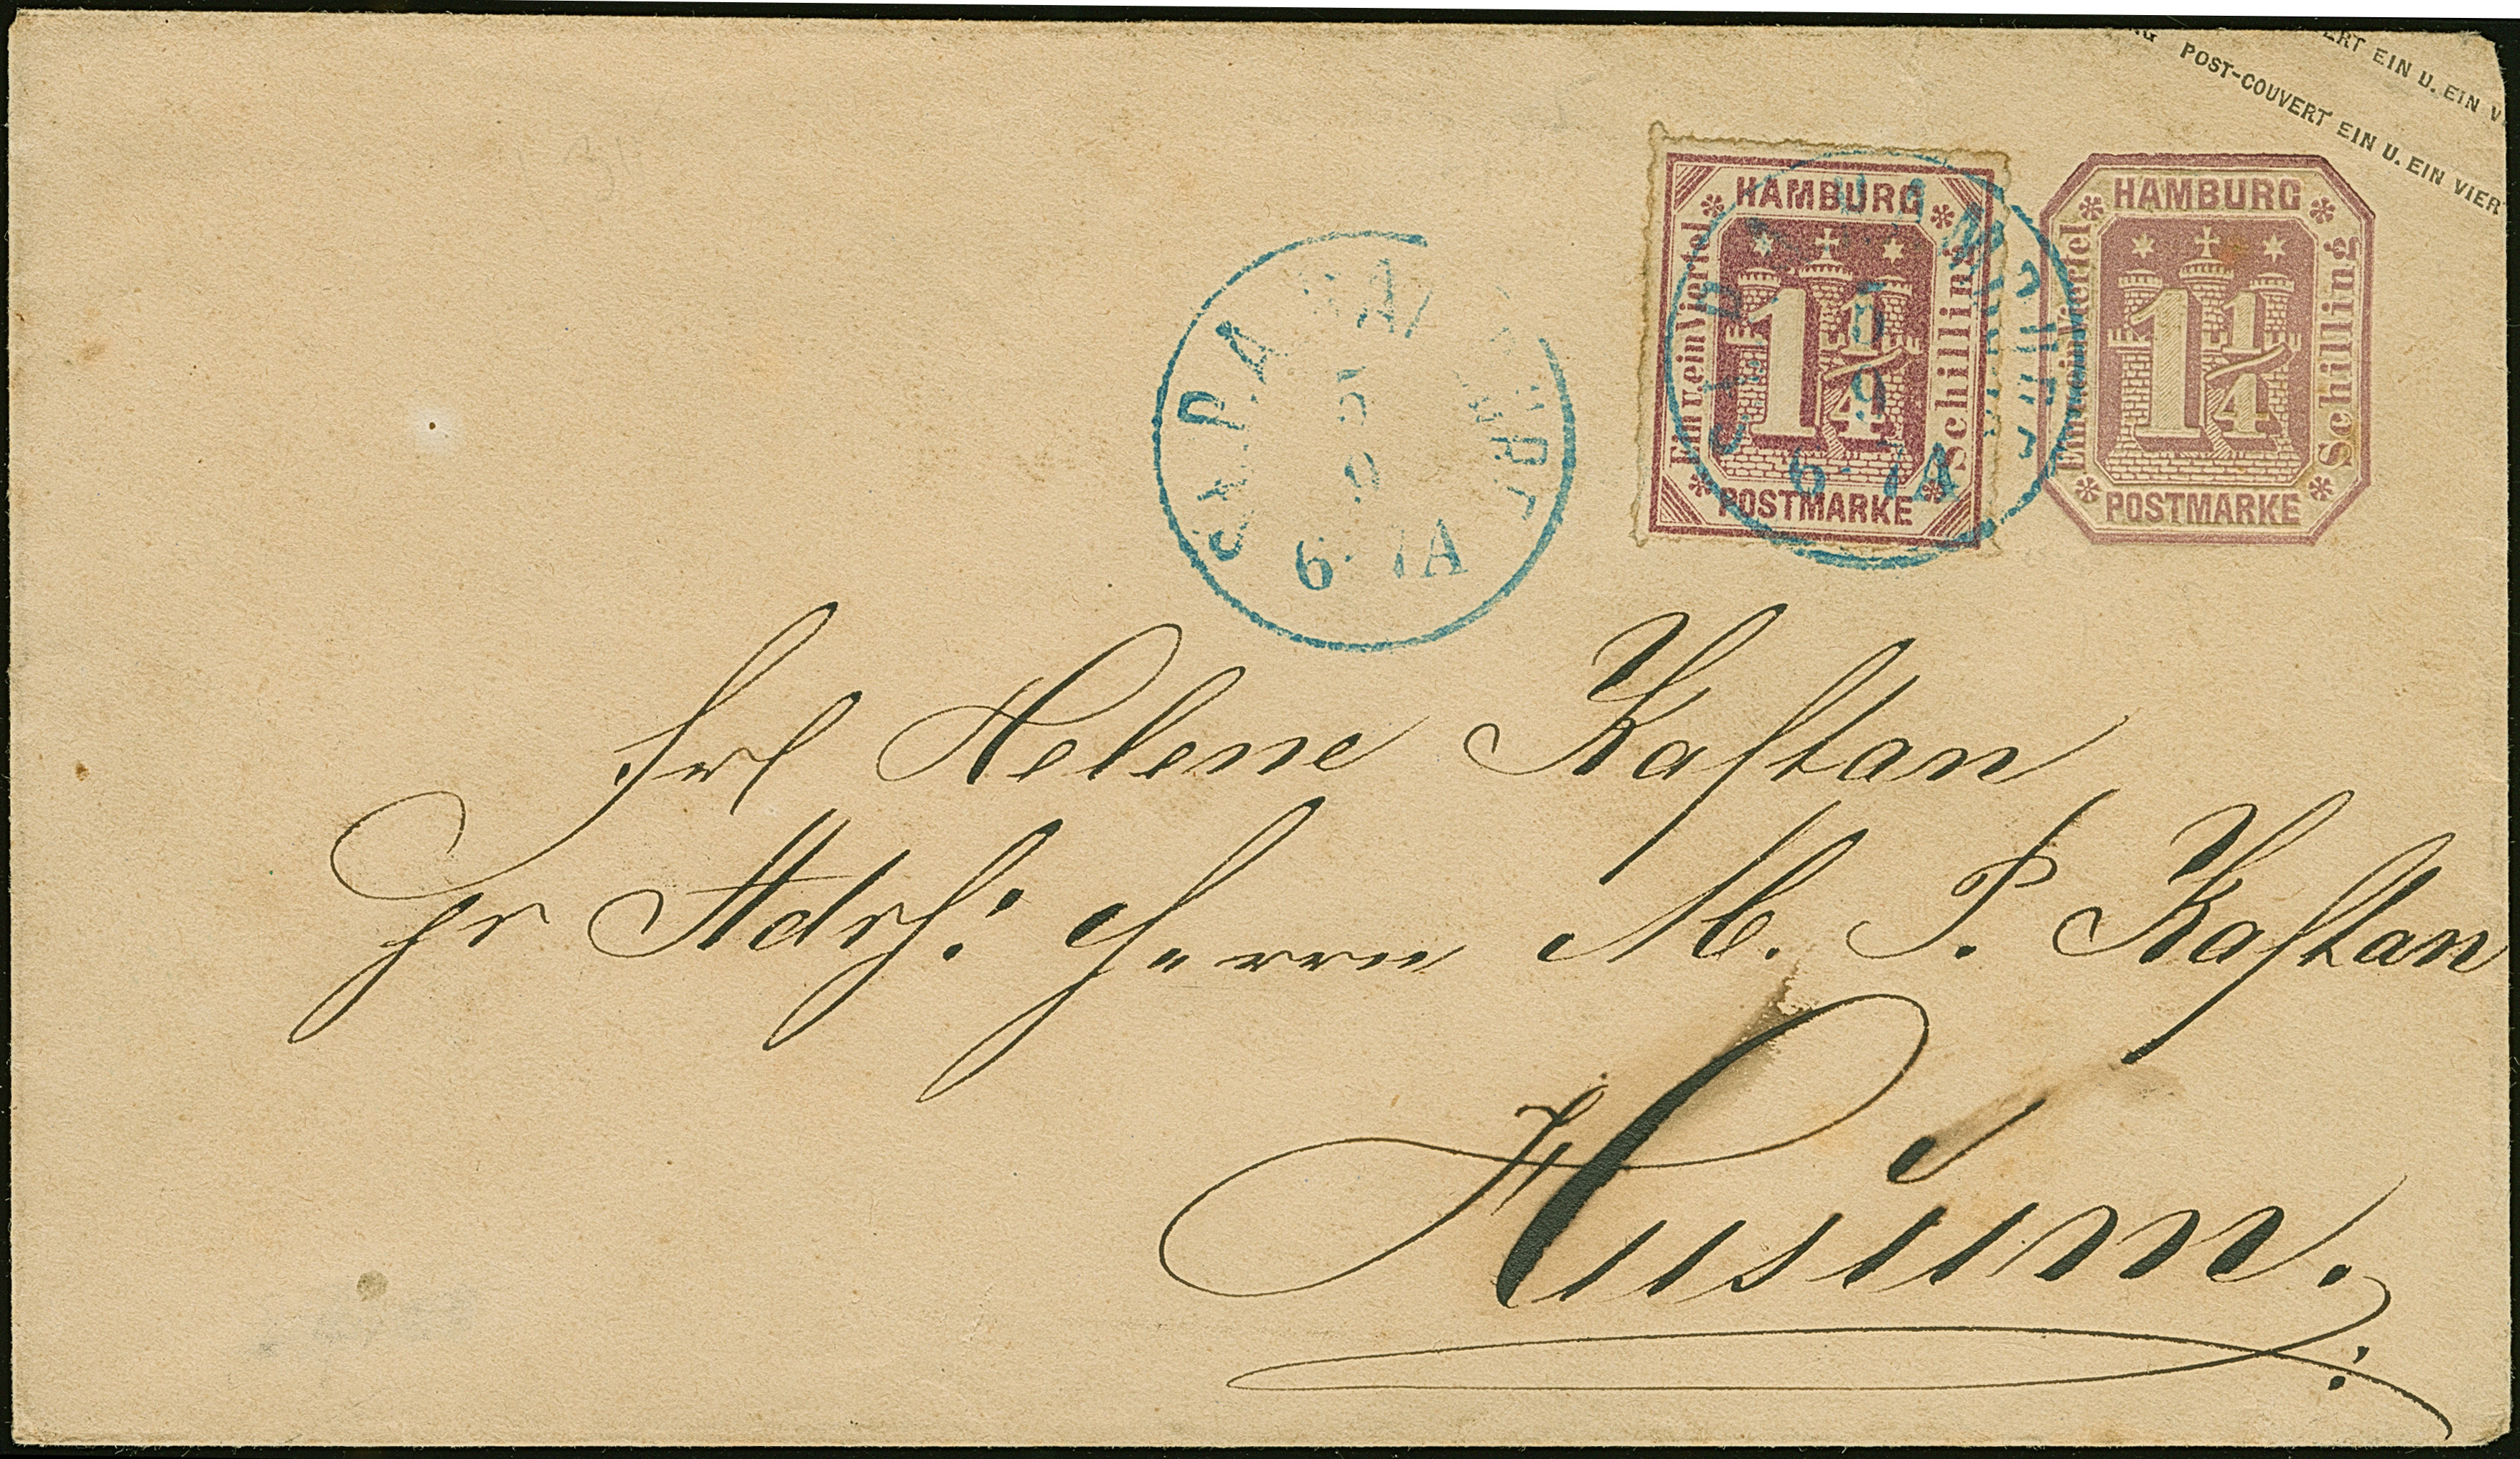 POST-COUVERT EIN U. EIN
POST-COUVERT EIN U. EIN VIER
HAMBURG
Ein u. ein Viertel
1 1/4
Schilling
POSTMARKE
HAMBURG
Ein u. ein Viertel
1 1/4
Schilling
POSTMARKE
St.P.A. HAMBURG
5
9
6-7A
St.P.A. HAMBURG
5
9
6-7A
Frl Helene Kaftan
pr Adrß: Herrn M. P. Kaftan
Husum.